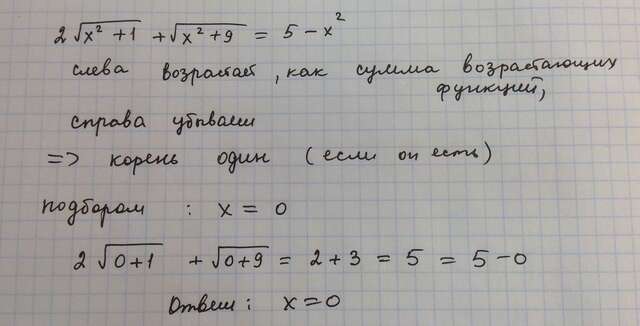 2 √(x² + 1) + √(x² + 9) = 5 - x²
слева возрастает, как сумма возрастающих
функций,
справа убывает
=> корень один (если он есть)
подбором : x = 0
2 √(0+1) + √(0+9) = 2 + 3 = 5 = 5 - 0
Ответ: x = 0